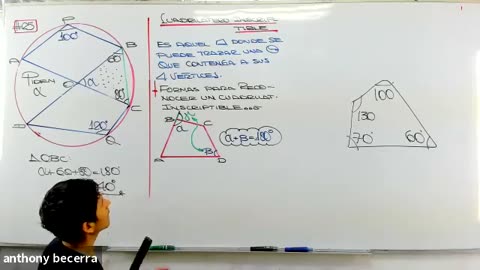 #25
P
100°
A
B
60°
PIDEN
α
O
α
80°
C
D
Q
△OBC:
α+60+80=180°
40°
CUADRILÁTERO INSCRIP-
TIBLE
ES AQUEL △ DONDE SE
PUEDE TRAZAR UNA
QUE CONTENGA A SUS
4 VÉRTICES.
FORMAS PARA RECO-
NOCER UN CUADRILAT.
INSCRIPTIBLE...
B
α
C
A
β
D
α+β=180°
100
130
70°
60°
anthony becerra